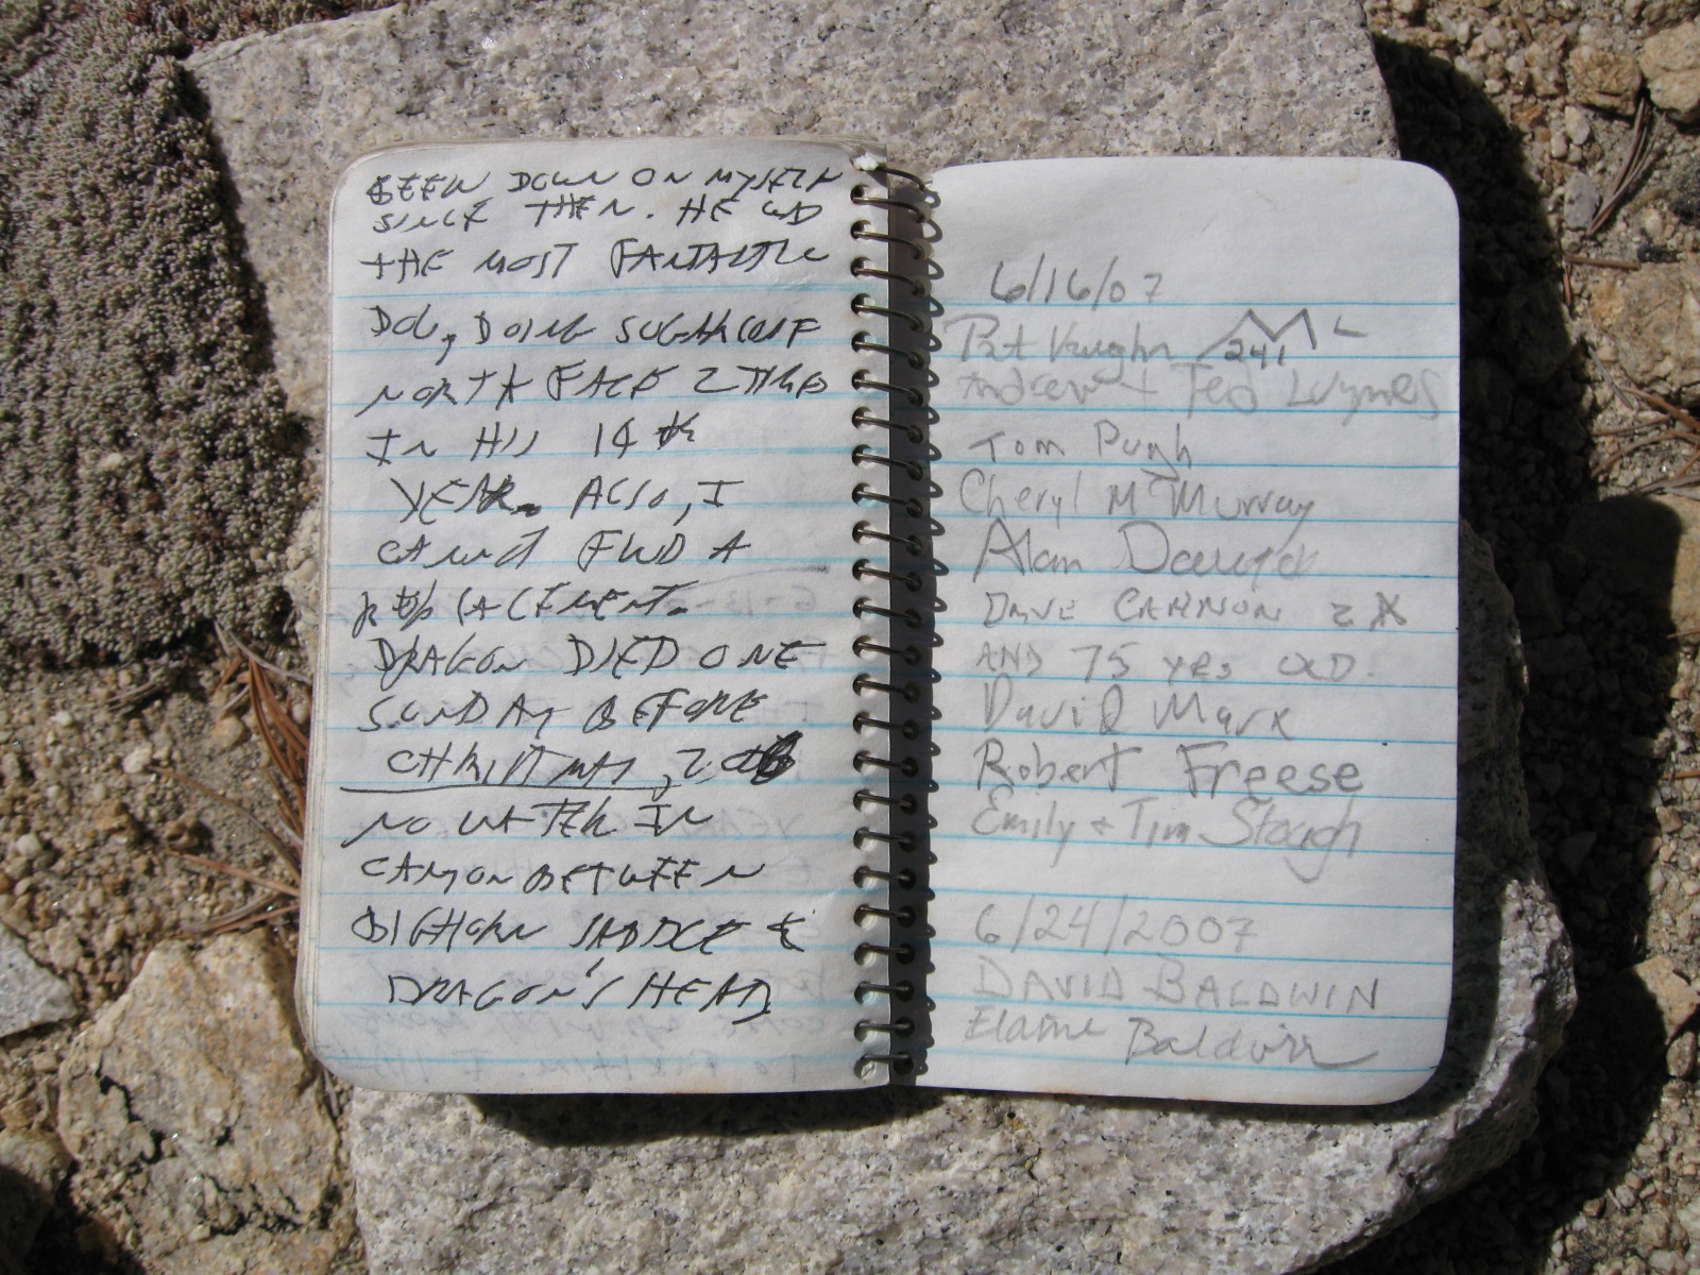 BEEN DOWN ON MYSELF
SINCE THEN. HE WAS
THE MOST FANTASTIC
DOG, DOING SUGARLOAF
NORTH FACE 2 TIMES
IN HIS 14th
YEAR. ALSO, I
CANNOT FIND A
REPLACEMENT.
DRAGON DIED ONE
SUNDAY BEFORE
CHRISTMAS,
NO WATER IN
CANYON BETWEEN
BIGHORN SADDLE &
DRAGON'S HEAD
6/16/07
Pat Vaughn 241
Andrew + Ted Lwymes
Tom Pugh
Cheryl McMurray
Alan
DAVE CANNON 2X
AND 75 YRS OLD.
David Marx
Robert Freese
Emily + Tim Stough
6/24/2007
DAVID BALDWIN
Elaine Baldwin